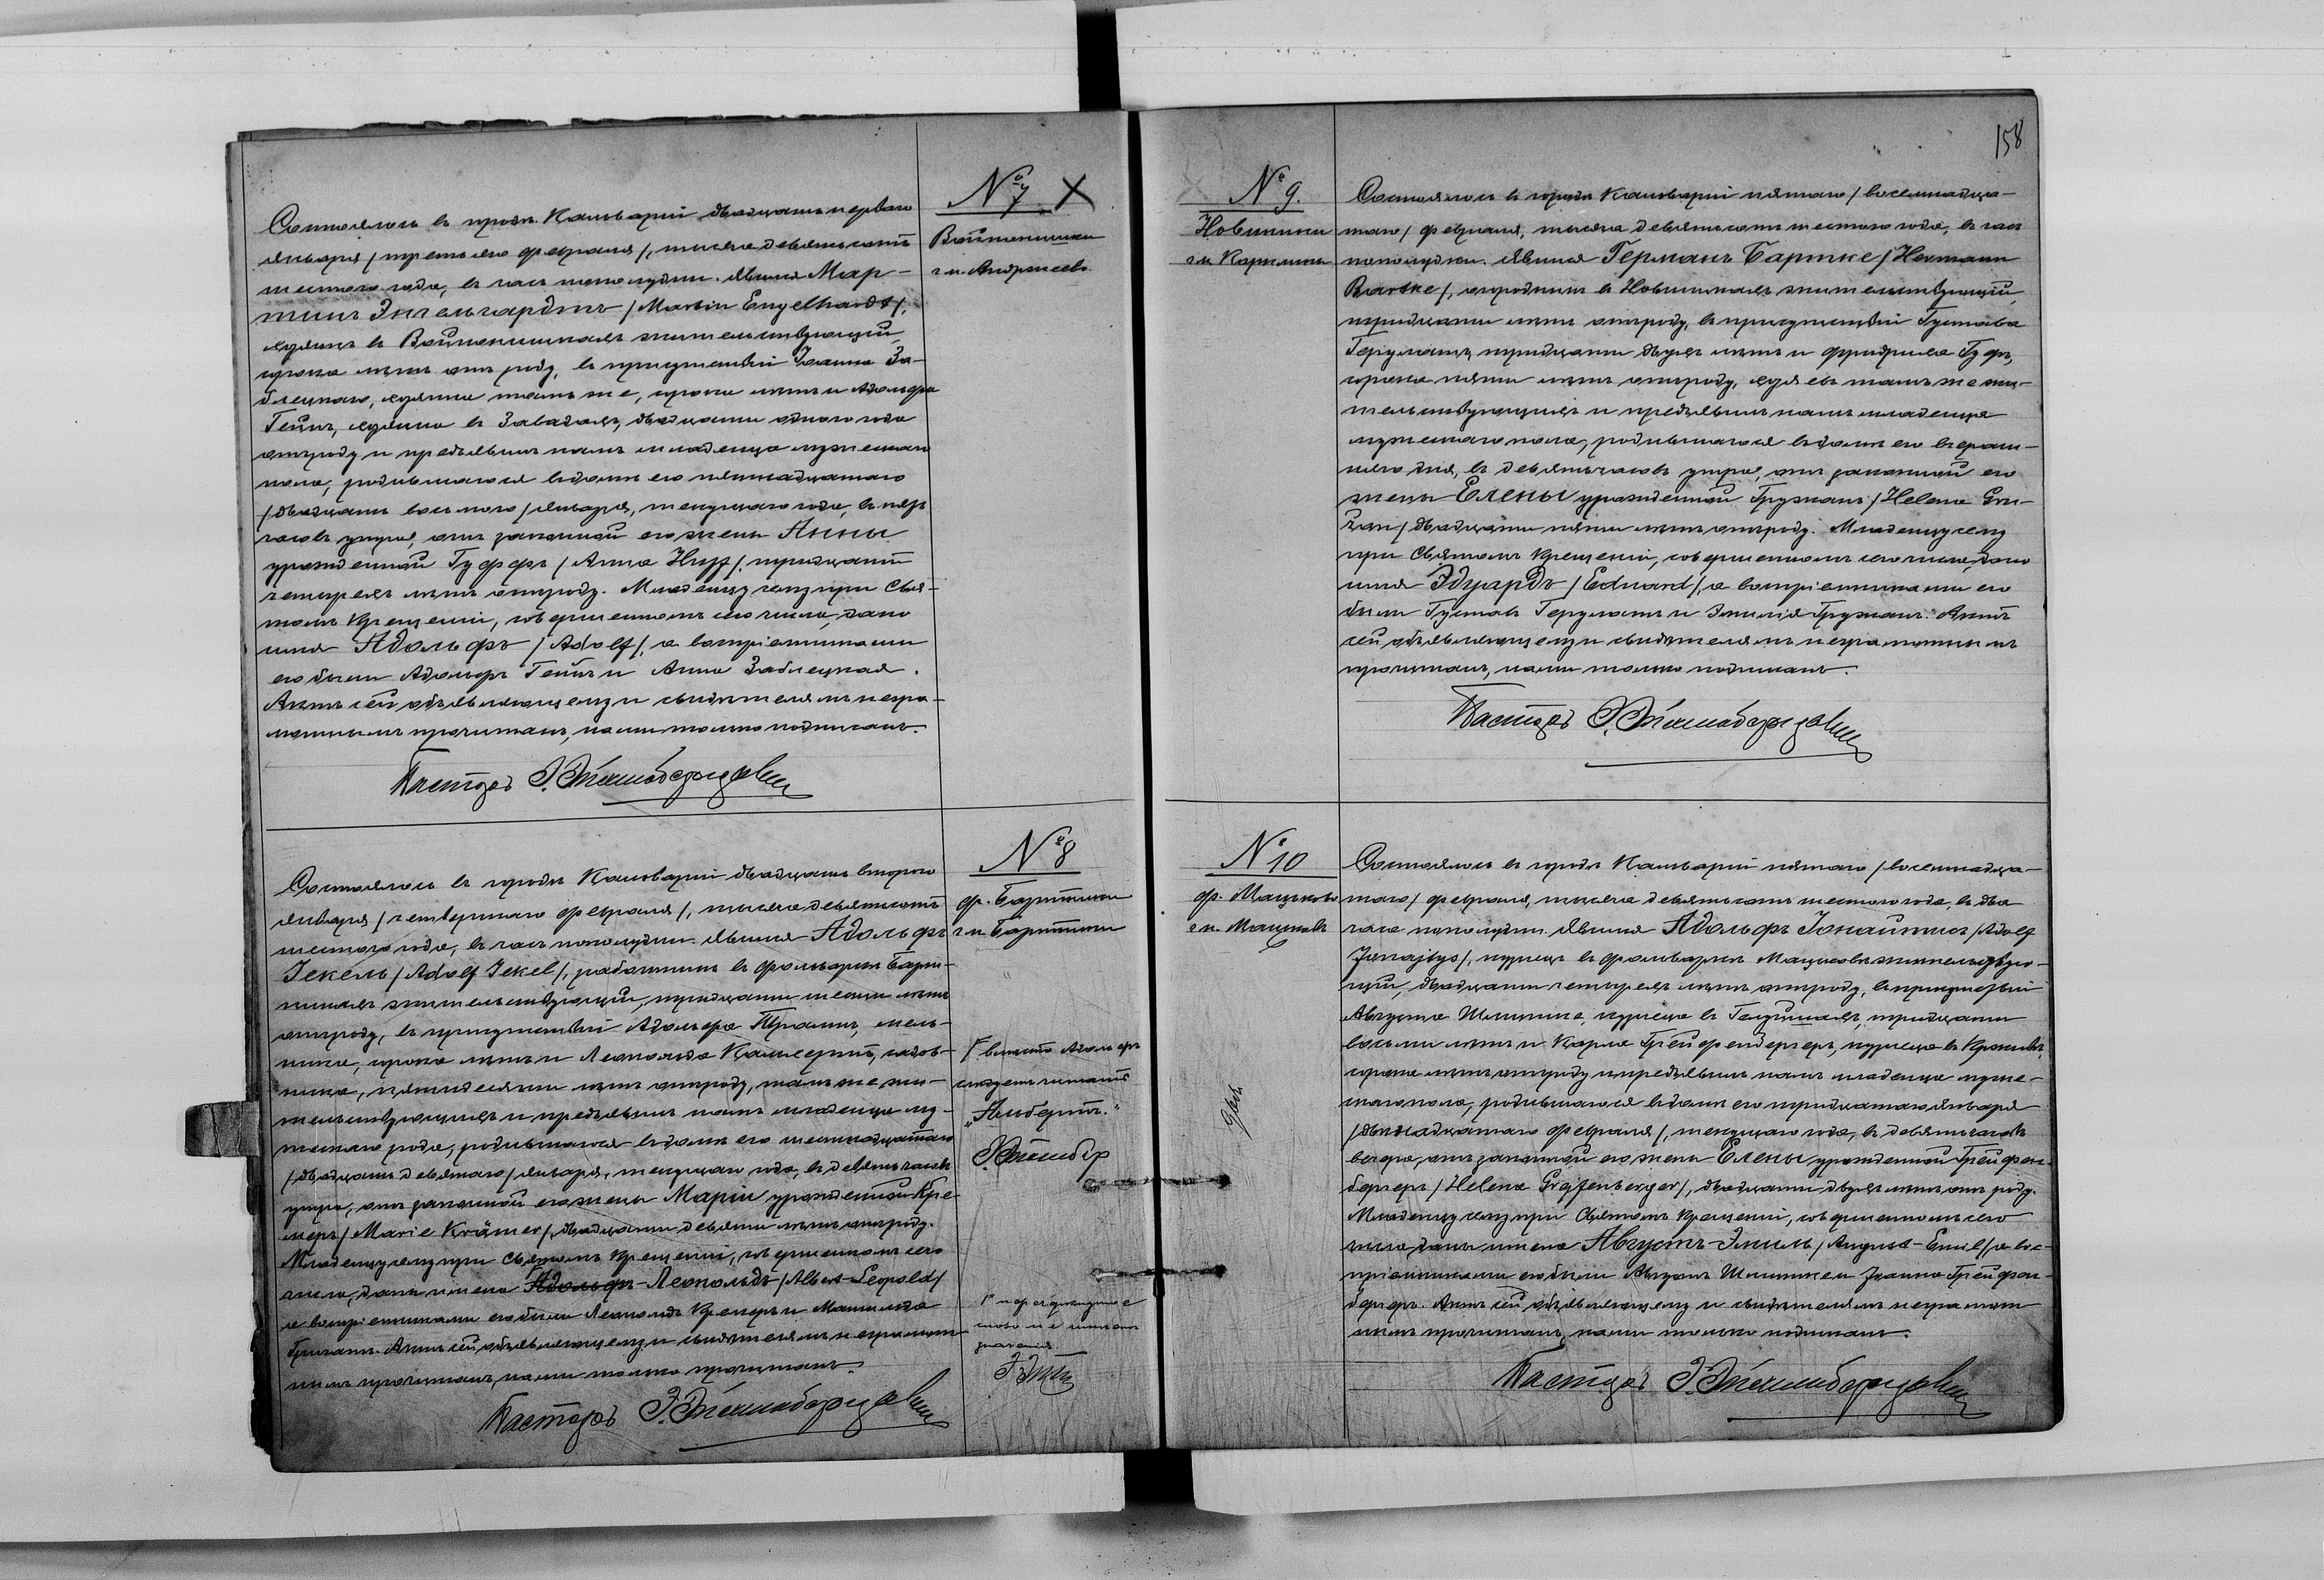 № 7 X
Войтокишки
г. м. Андржеево
Состоялось въ городѣ Кальваріи двадцать перваго
января /третьяго февраля/, тысяча девятьсотъ
шестого года, въ часъ пополудни. Явился Мар-
тинъ Энгельгардтъ /Martin Engelhardt/,
въ жительствующій,
сорока лѣтъ отъ роду, въ присутствіи Іоанна За-
блецкаго, тамъ же, сорока лѣтъ и Адольфа
въ Завадахъ, двадцати одного года
отъ роду и предъявилъ намъ младенца мужескаго
пола, родившагося въ домѣ его пятнадцатаго
/двадцать восьмого/ января, текущаго года, въ пять
часовъ утра, отъ законной его жены Анны
урожденной Гуффъ /Anna Huff/, тридцати
четырехъ лѣтъ отъ роду. Младенцу сему при Свя-
томъ Крещеніи, совершенномъ сего числа, дано
имя Адольфъ /Adolf/, а воспріемниками
его были Адольфъ и Анна Заблецкая.
Актъ сей объявляющему и свидѣтелямъ негра-
мотнымъ прочитанъ, нами только подписанъ.
Пасторъ Э.
№ 8
ф. Бартники
г. м. Бартники
Состоялось въ городѣ Кальваріи двадцать второго
января /четвертаго февраля/, тысяча девятьсотъ
шестого года, въ часъ пополудни. Явился Адольфъ
Іекель /Adolf Jekel/, работникъ въ фольваркѣ Барт-
никахъ жительствующій, тридцати шести лѣтъ
отъ роду, въ присутствіи Адольфа мель-
ника, сорока лѣтъ и Леопольда садов-
ника, пятидесяти лѣтъ отъ роду, тамъ же жи-
тельствующихъ и предъявилъ намъ младенца му-
жескаго рода, родившагося въ домѣ его шестнадцатаго
/двадцать девятаго/ января, текущаго года, въ девять часовъ
утра, отъ законной его жены Маріи урожденной Кре-
меръ /Marie Krämer/, двадцати девяти лѣтъ отъ роду.
Младенцу сему при Святомъ Крещеніи, совершенномъ сего
числа, даны имена Адольфъ-Леопольдъ /Albert-Leopold/
а воспріемниками его были Леопольдъ Кремеръ и Матильда
Актъ сей объявляющему и свидѣтелямъ неграмот-
нымъ прочитанъ, нами только прочитанъ.
Пасторъ Э.
вмѣсто Адольфъ
слѣдуетъ читать
„Альбертъ.“
зачеркнутое
слово не имѣетъ
значенія
158
№ 9.
Новиники
г. м.
Состоялось въ городѣ Кальваріи пятаго /восемнадца-
таго/ февраля, тысяча девятьсотъ шестого года, въ часъ
пополудни. Явился Германъ Бартке /Hermann
Bartke/, огородникъ въ Новиникахъ жительствующій,
тридцати лѣтъ отъ роду, въ присутствіи Густава
тридцати двухъ лѣтъ и Фридриха
сорока пяти лѣтъ отъ роду, тамъ же жи-
тельствующихъ и предъявилъ намъ младенца
мужескаго пола, родившагося въ домѣ его вчераш-
няго дня, въ девять часовъ утра, отъ законной его
жены Елены урожденной Грузманъ /Helene Gru-
двадцати пяти лѣтъ отъ роду. Младенцу сему
при Святомъ Крещеніи, совершенномъ сего числа, дано
имя Эдуардъ /Eduard/, а воспріемниками его
были Густавъ и Эмилія Грузманъ. Актъ
сей объявляющему и свидѣтелямъ неграмотнымъ
прочитанъ, нами только подписанъ.
Пасторъ Э.
№ 10
ф. Мацьково
г. м. Мацьковъ
Состоялось въ городѣ Кальваріи пятаго /восемнадца-
таго/ февраля, тысяча девятьсотъ шестого года, въ два
часа пополудни. Явился Адольфъ Іонайтисъ /Adolf
Jonajtys/, кузнецъ въ фольваркѣ Мацьковѣ жительствую-
щій, двадцати четырехъ лѣтъ отъ роду, въ присутствіи
Августа кузнеца въ тридцати
восьми лѣтъ и Карла Грейфенбергеръ, кузнеца въ
сорока лѣтъ отъ роду и предъявилъ намъ младенца муже-
скаго пола, родившагося въ домѣ его тридцатаго января
/двѣнадцатаго февраля/, текущаго года, въ девять часовъ
вечера, отъ законной его жены Елены урожденной Грейфен-
бергеръ /Helene Greifenberger/, двадцати двухъ лѣтъ отъ роду.
Младенцу сему при Святомъ Крещеніи, совершенномъ сего
числа, даны имена Августъ-Эмиль /August-Emil/, а вос-
пріемниками его были Августъ и Іоанна Грейфен-
бергеръ. Актъ сей объявляющему и свидѣтелямъ неграмот-
нымъ прочитанъ, нами только подписанъ.
Пасторъ Э.